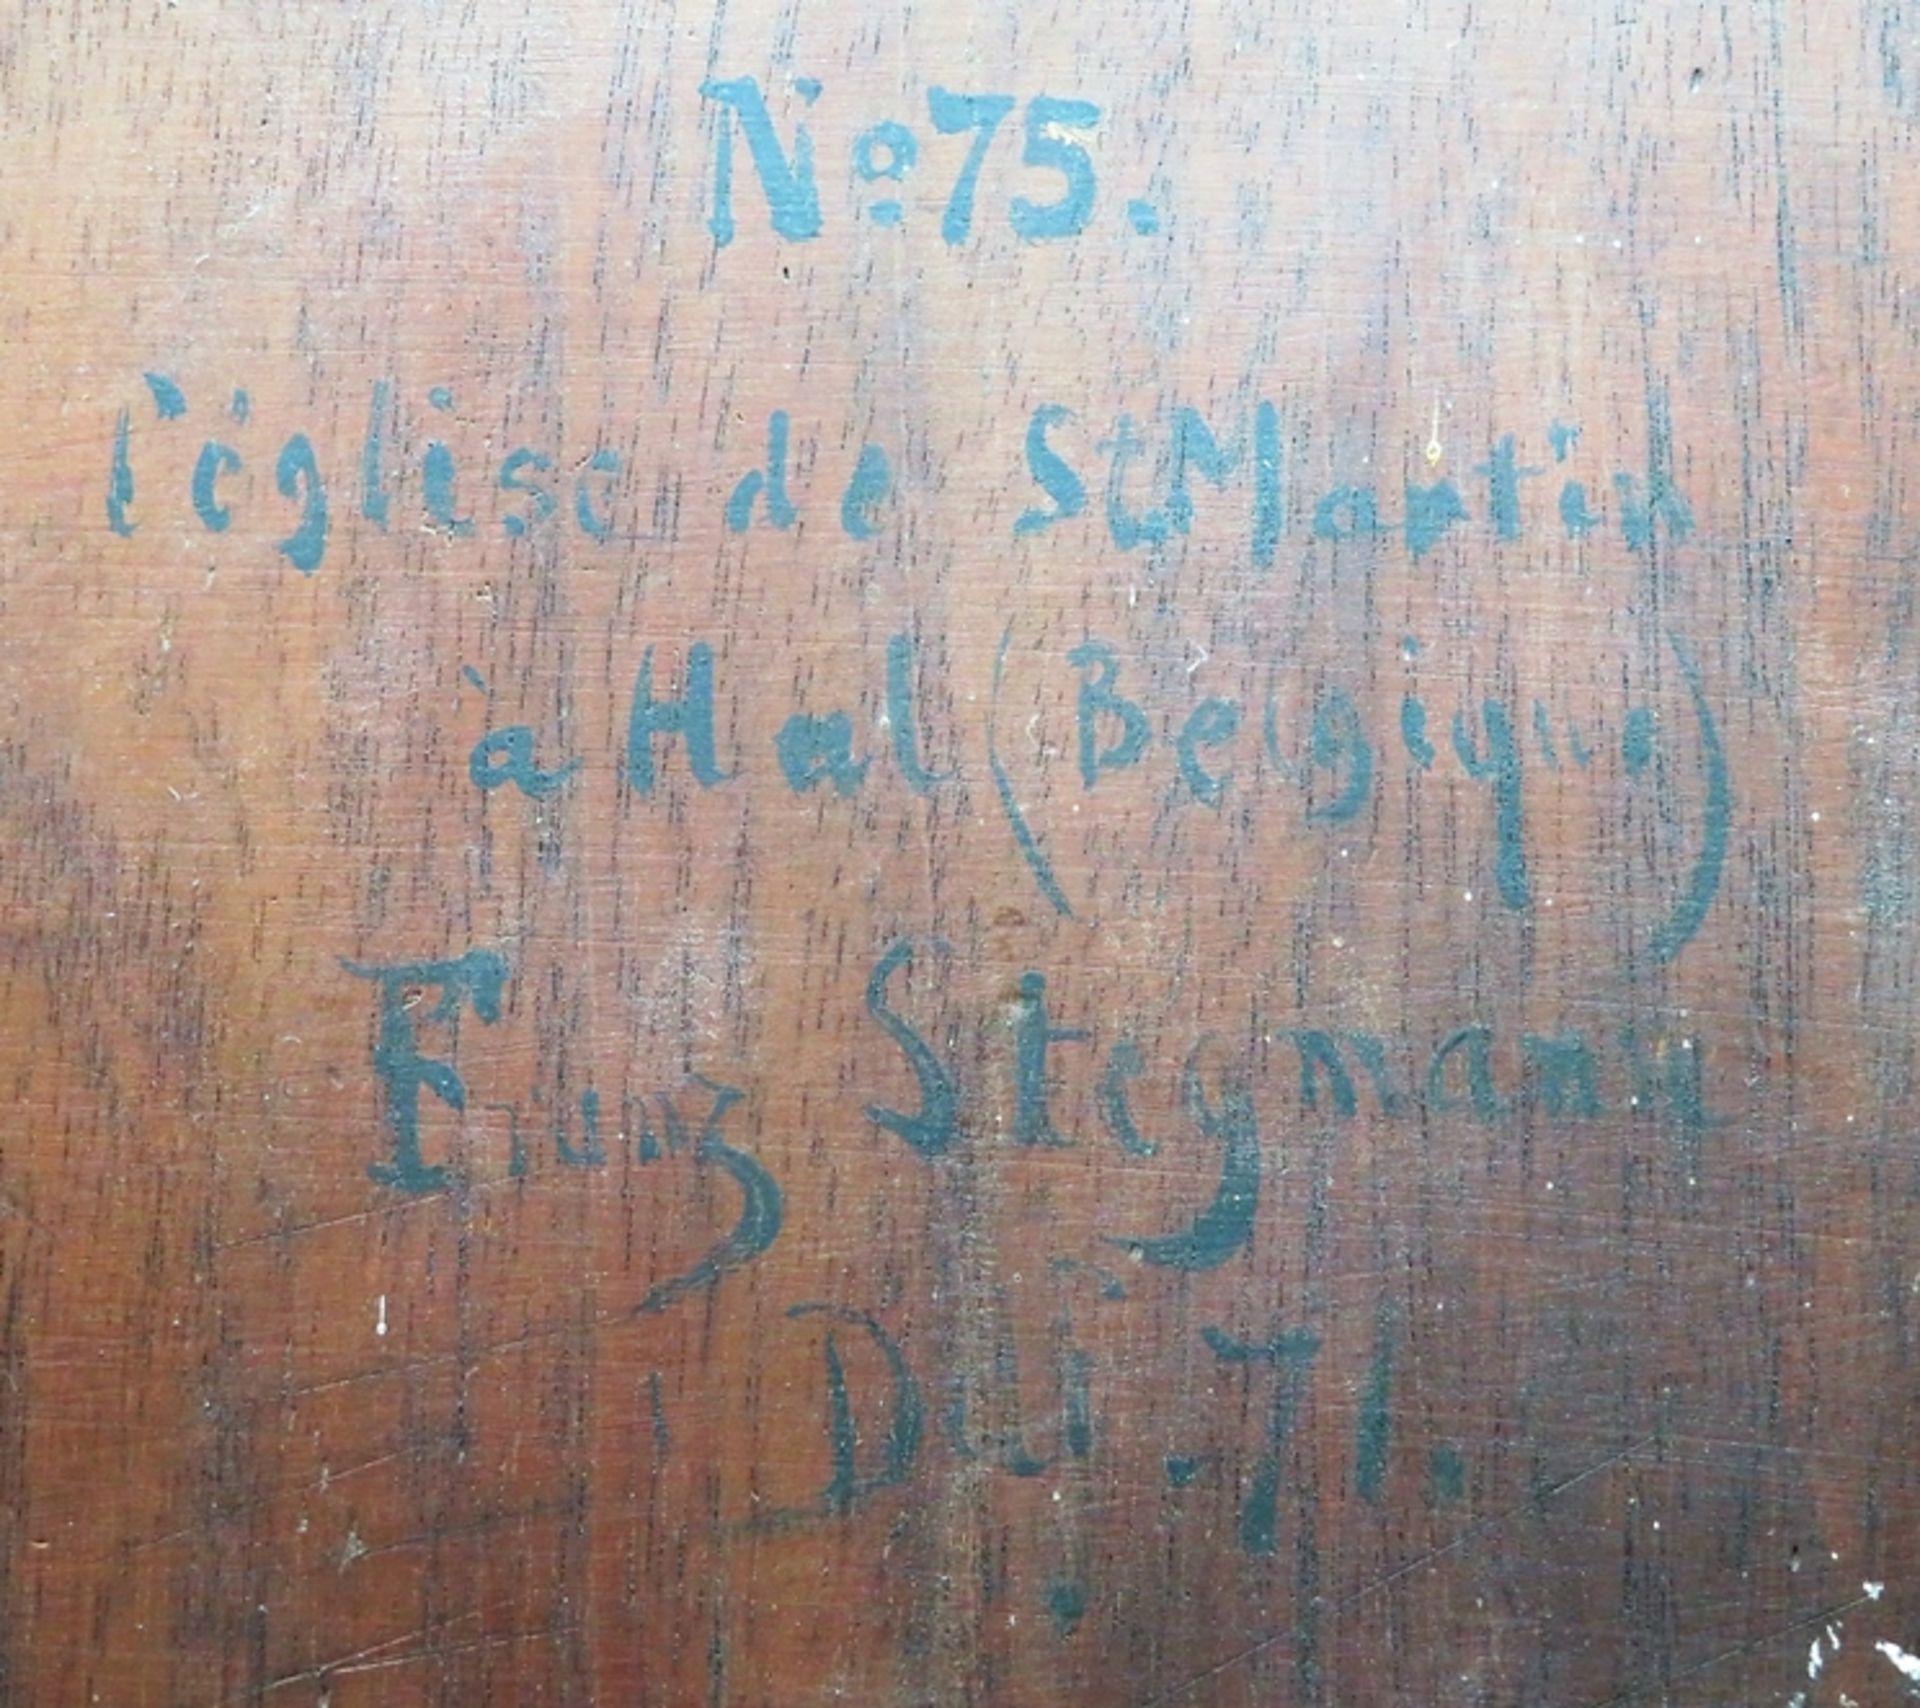 Nº 75.
l'église de St Martin
à Hal (Belgique)
Franz Stegmann
Ddf. 71.